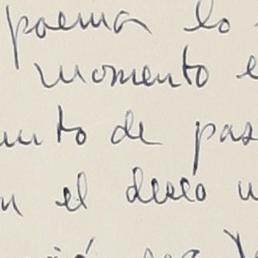 poema lo
momento e
nto de pas
n el deseo u